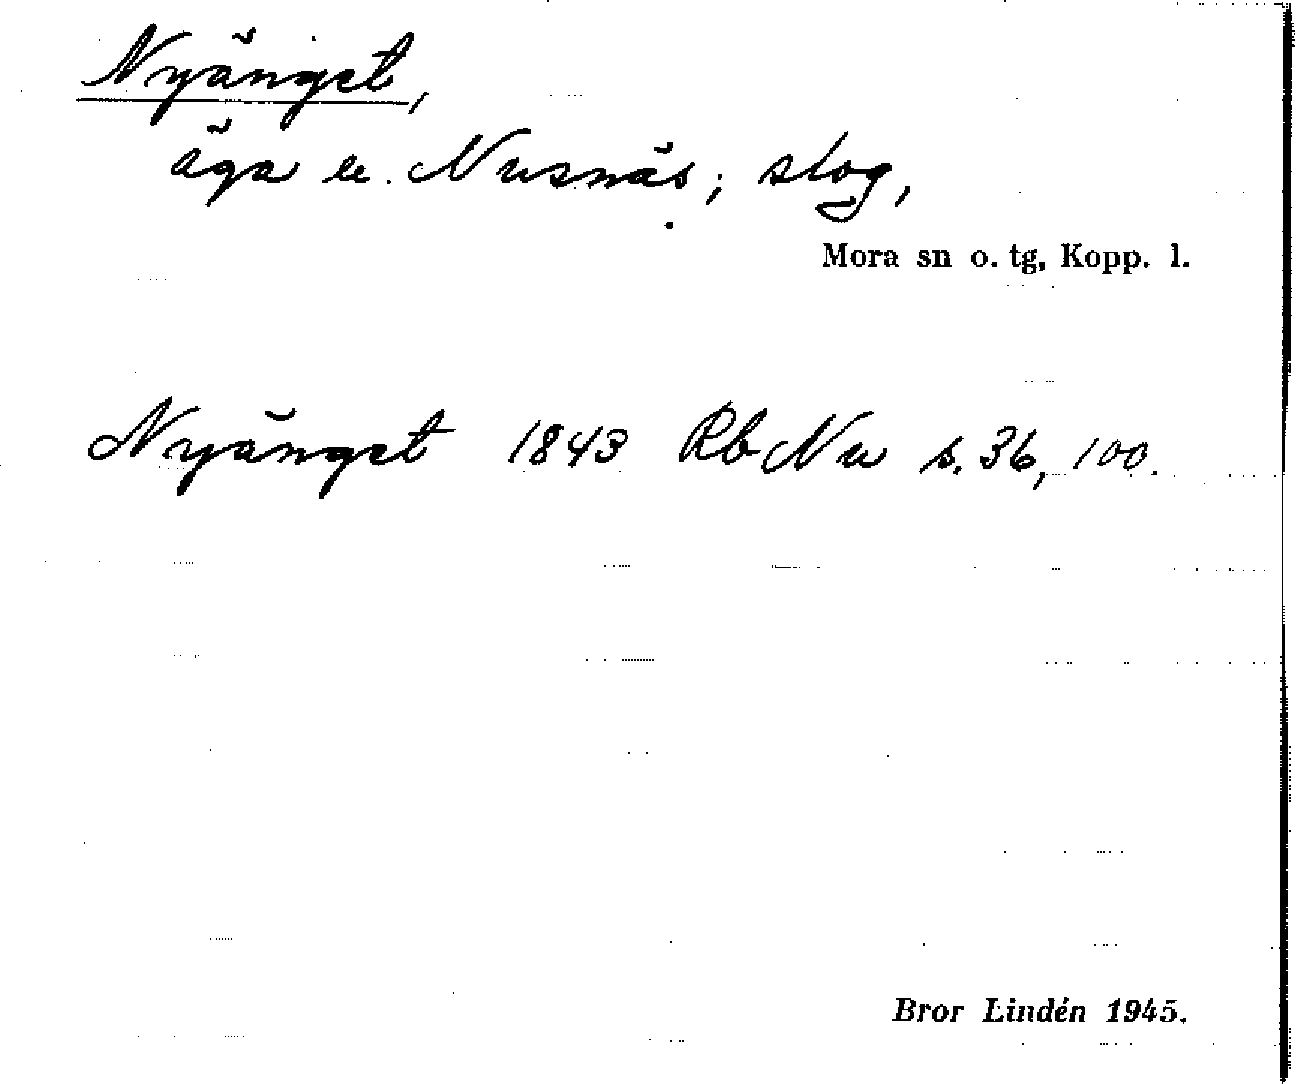 Nyänget,
äga u. Nusnäs; slog,
Mora sn o. tg, Kopp. l.
Nyänget 1843 Rb Nu s. 36, 100.
Bror Lindén 1945.